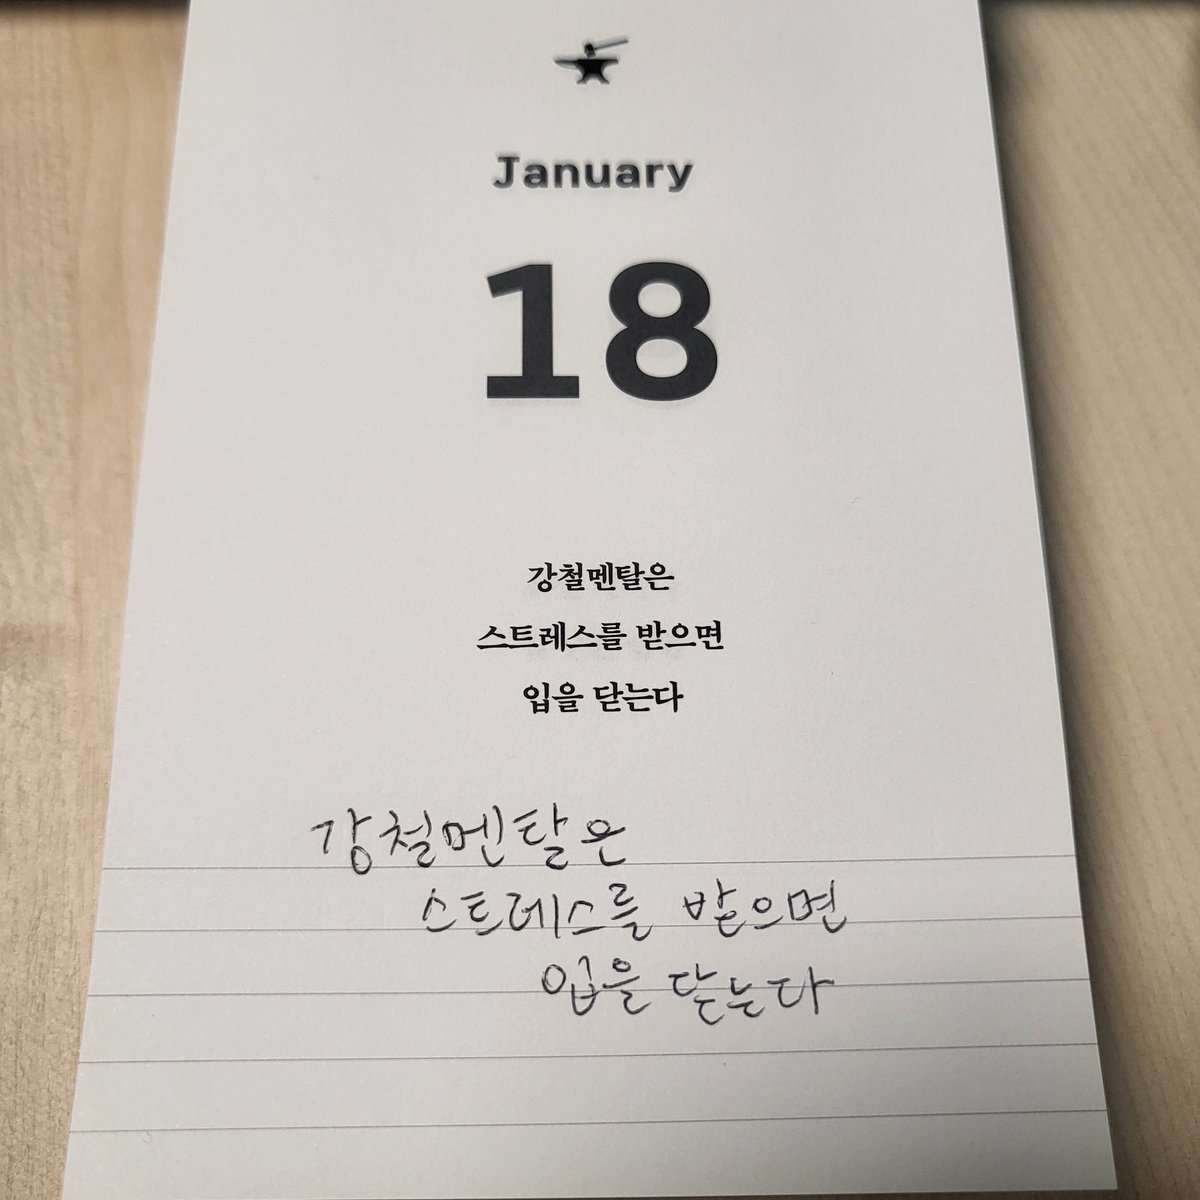 January
18
강철멘탈은
스트레스를 받으면
입을 닫는다
강철멘탈은
스트레스를 받으면
입을 닫는다